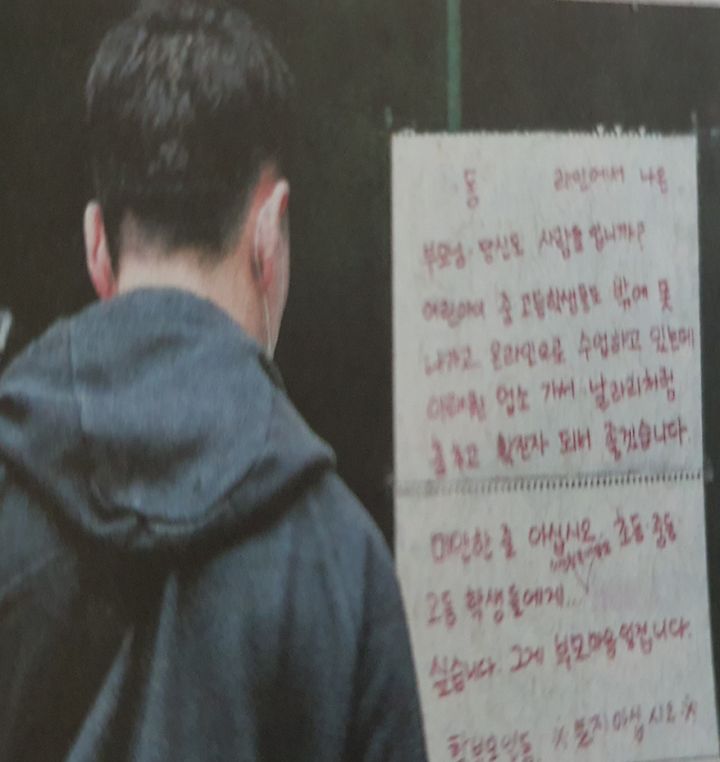 동 라인에서 나온
부모님. 당신도 사람들 입니까?
어린이여 중 고등학생들도 밖에 못
나가고 온라인으로 수업하고 있는데
이태원 업소 가서 날라리처럼
춤추고 확진자 되버 좋겠습니다.
미안한 줄 아십시오. 초등·중등·
고등 학생들에게...
싶습니다. 그게 부모마음 일겁니다.
학부모일동 ※ 떼지마십시오 ※